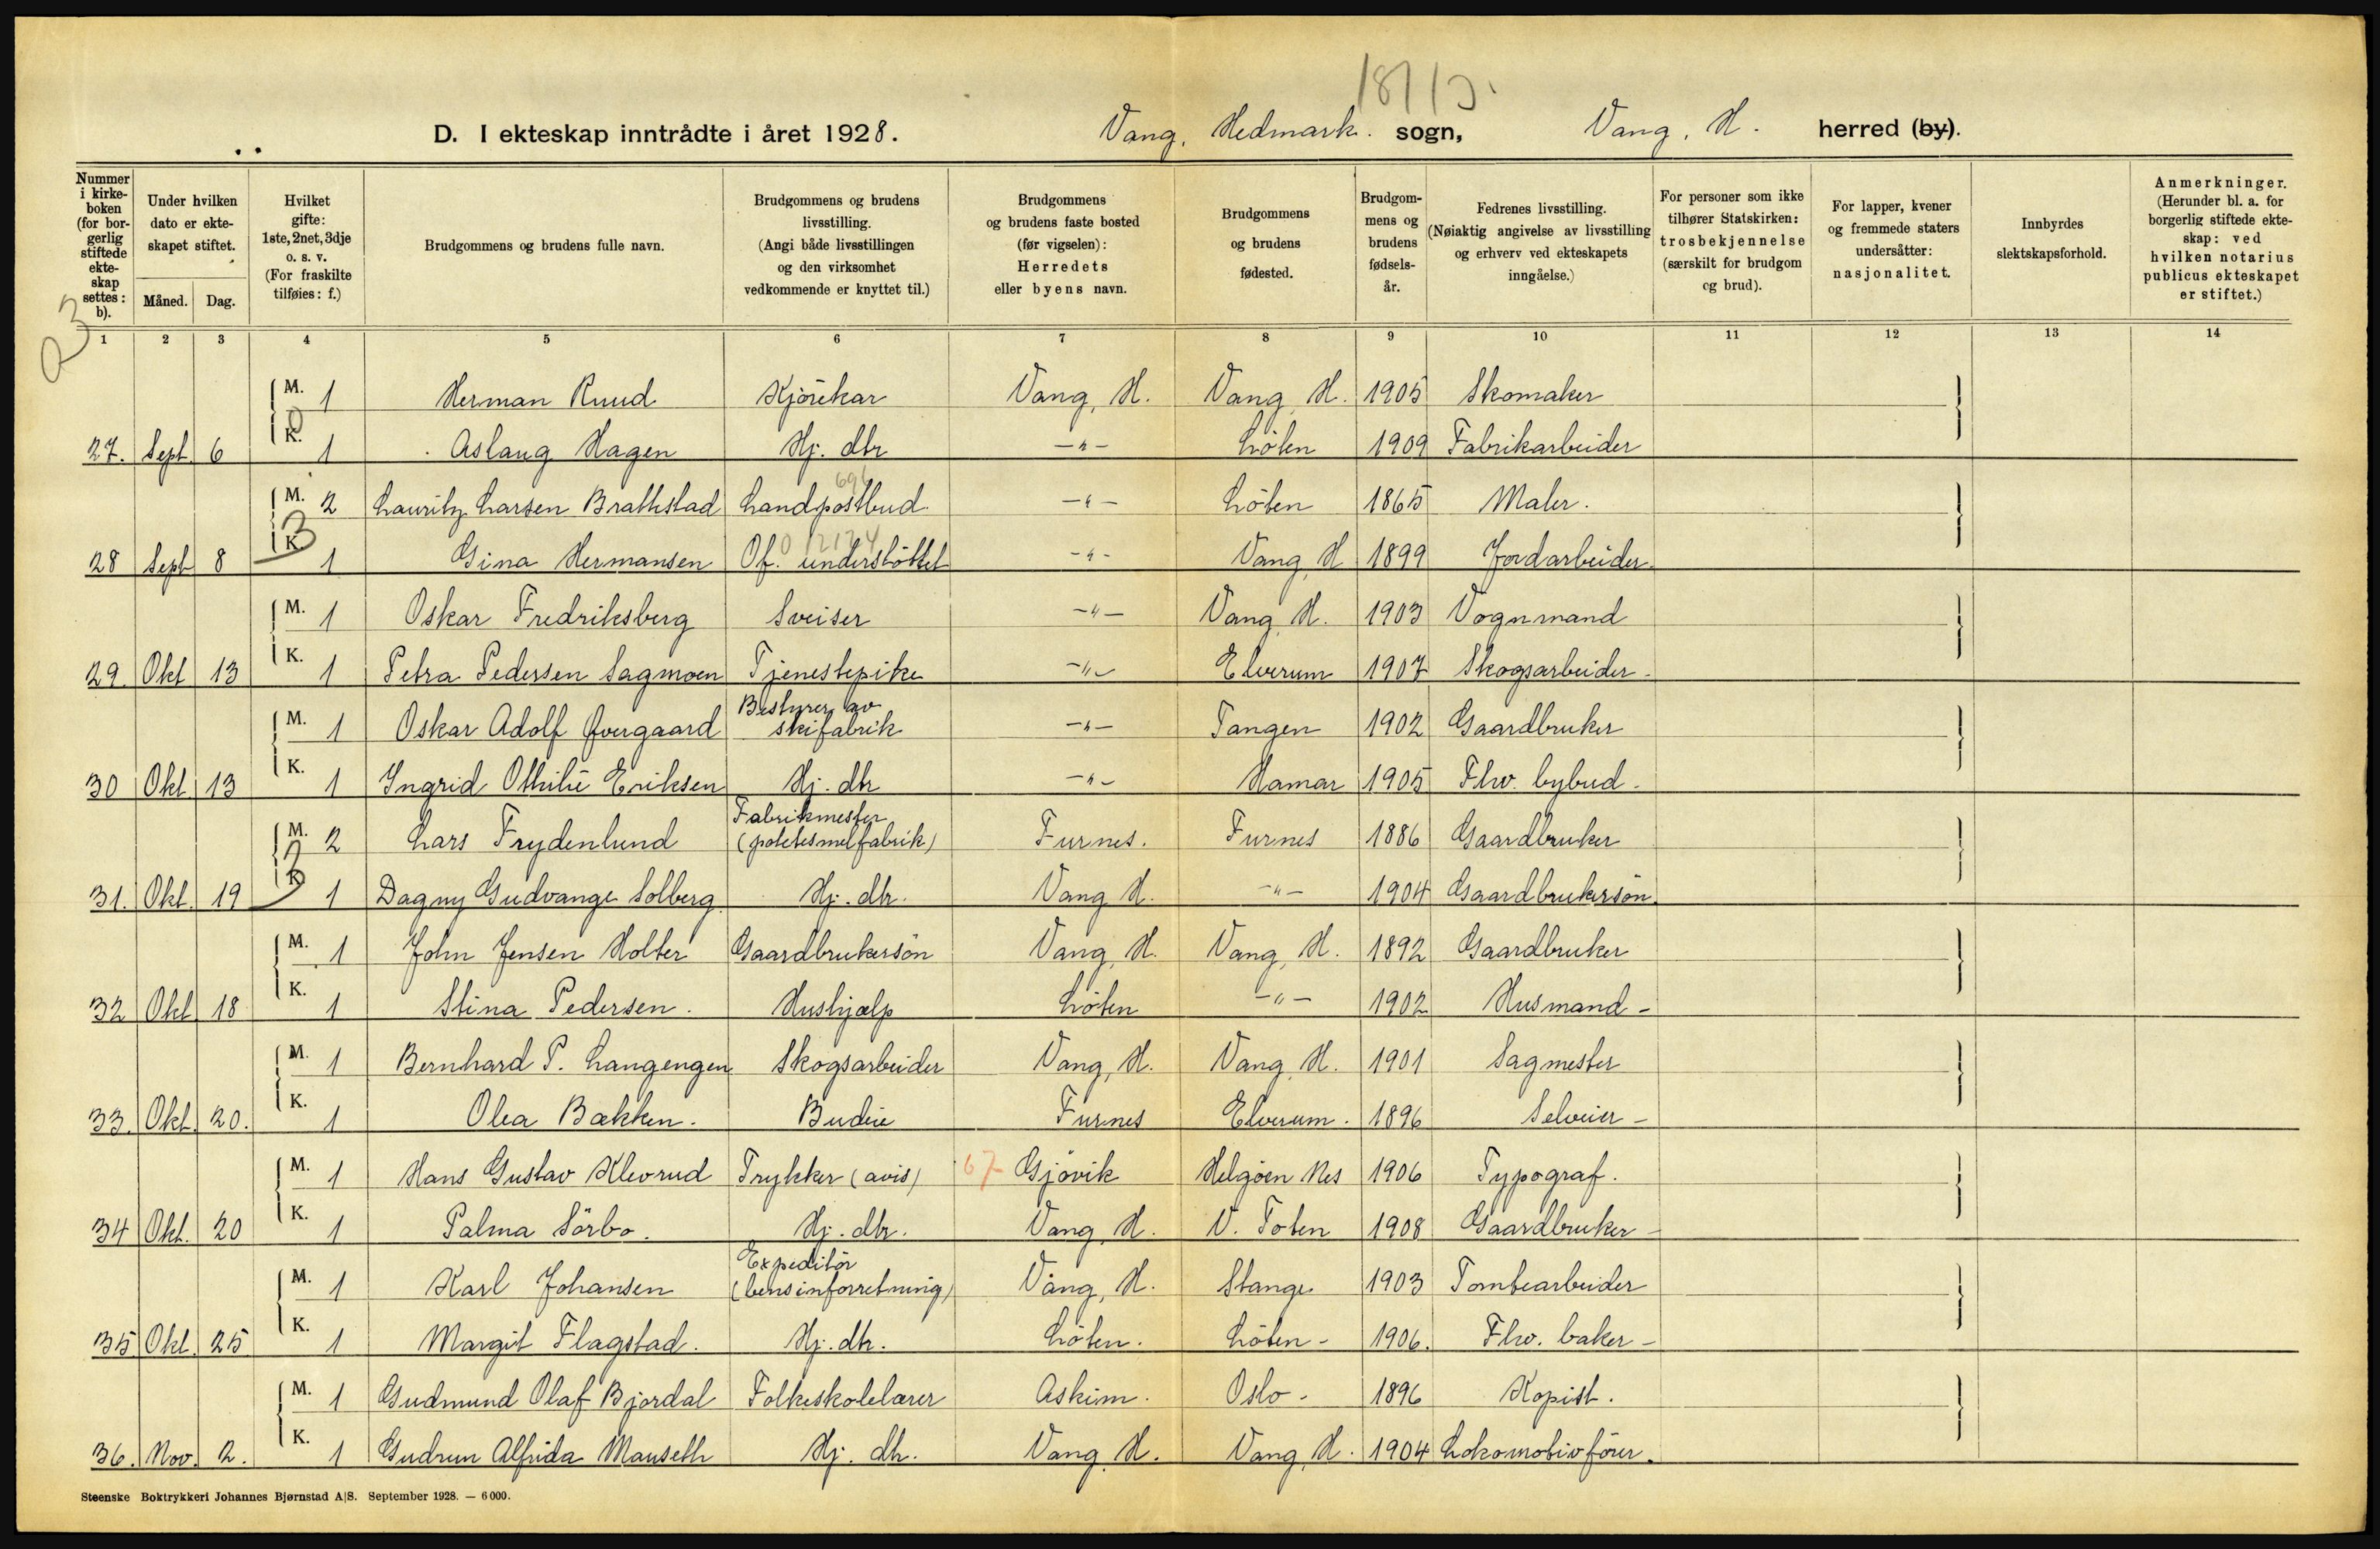 1813.
D. I ekteskap inntrådte i året 1928. Vang, Hedmark. sogn, Vang, H. herred (by).
Nummer i kirke-boken (for bor-gerlig stiftede ekte-skap settes: b).
Under hvilken dato er ekte-skapet stiftet.
Måned. Dag.
Hvilket gifte: 1ste, 2net, 3dje o. s. v. (For fraskilte tilføies: f.)
Brudgommens og brudens fulle navn.
Brudgommens og brudens livsstilling. (Angi både livsstillingen og den virksomhet vedkommende er knyttet til.)
Brudgommens og brudens faste bosted (før vigselen): Herredets eller byens navn.
Brudgommens og brudens fødested.
Brudgom-mens og brudens fødsels-år.
Fedrenes livsstilling. (Nøiaktig angivelse av livsstilling og erhverv ved ekteskapets inngåelse.)
For personer som ikke tilhører Statskirken: trosbekjennelse (særskilt for brudgom og brud).
For lapper, kvener og fremmede staters undersåtter: nasjonalitet.
Innbyrdes slektskapsforhold.
Anmerkninger. (Herunder bl. a. for borgerlig stiftede ekte-skap: ved hvilken notarius publicus ekteskapet er stiftet.)
1 2 3 4 5 6 7 8 9 10 11 12 13 14
M. 1 Herman Ruud Kjörekar Vang, H. Vang, H. 1905 Skomaker
27. Sept. 6 K. 1 Aslaug Hagen Hj. dtr -"- Löten 1909 Fabrikarbeider
696
M. 2 Lauritz Larsen Brattstad Landpostbud -"- Löten 1865 Maler.
28 Sept 8 K. 1 Gina Hermansen Of. understöttet -"- Vang H 1899 Jordarbeider.
M. 1 Oskar Fredriksberg Sveiser -"- Vang H. 1903 Vognmand
29. Okt 13 K. 1 Petra Pedersen Sagmoen Tjenestepike -"- Elverum 1907 Skogsarbeider.
M. 1 Oskar Adolf Øvergaard Bestyrer av skifabrik -"- Tangen 1902 Gaardbruker
30 Okt. 13 K. 1 Ingrid Othilie Eriksen Hj. dtr -"- Hamar 1905 Fhv. bybud.
M. 2 Lars Frydenlund Fabrikmester (potetesmelfabrik) Furnes. Furnes 1886 Gaardbruker
31. Okt. 19 K. 1 Dagny Gudvange Solberg Hj. dtr. Vang H. -"- 1904 Gaardbrukersön.
M. 1 John Jensen Holter Gaardbrukersön Vang, H. Vang, H. 1892 Gaardbruker
32 Okt 18 K. 1 Stina Pedersen. Hushjælp Löten -"- 1902 Husmand -
M. 1 Bernhard P. Langengen Skogsarbeider Vang, H. Vang, H. 1901 Sagmester
33. Okt. 20. K. 1 Olea Bækken. Budeie Furnes Elverum. 1896 Selveier -
M. 1 Hans Gustav Klevrud Trykker (avis) 67 Gjövik Helgöen Nes 1906 Typograf.
34 Okt. 20 K. 1 Palma Sörbo. Hj. dtr. Vang, H. V. Toten 1908 Gaardbruker -
M. 1 Karl Johansen Expeditör (bensinforretning) Vang, H. Stange 1903 Tomtearbeider
35 Okt. 25 K. 1 Margit Flagstad. Hj. dtr. Löten. Löten - 1906. Fhv. baker -
M. 1 Gudmund Olaf Bjordal Folkeskolelærer Askim. Oslo - 1896 Kopist.
36. Nov. 2. K. 1 Gudrun Alfrida Mauseth Hj. dtr. Vang H. Vang, H. 1904 Lokomotivförer.
Steenske Boktrykkeri Johannes Bjørnstad A|S. September 1928. — 6000.